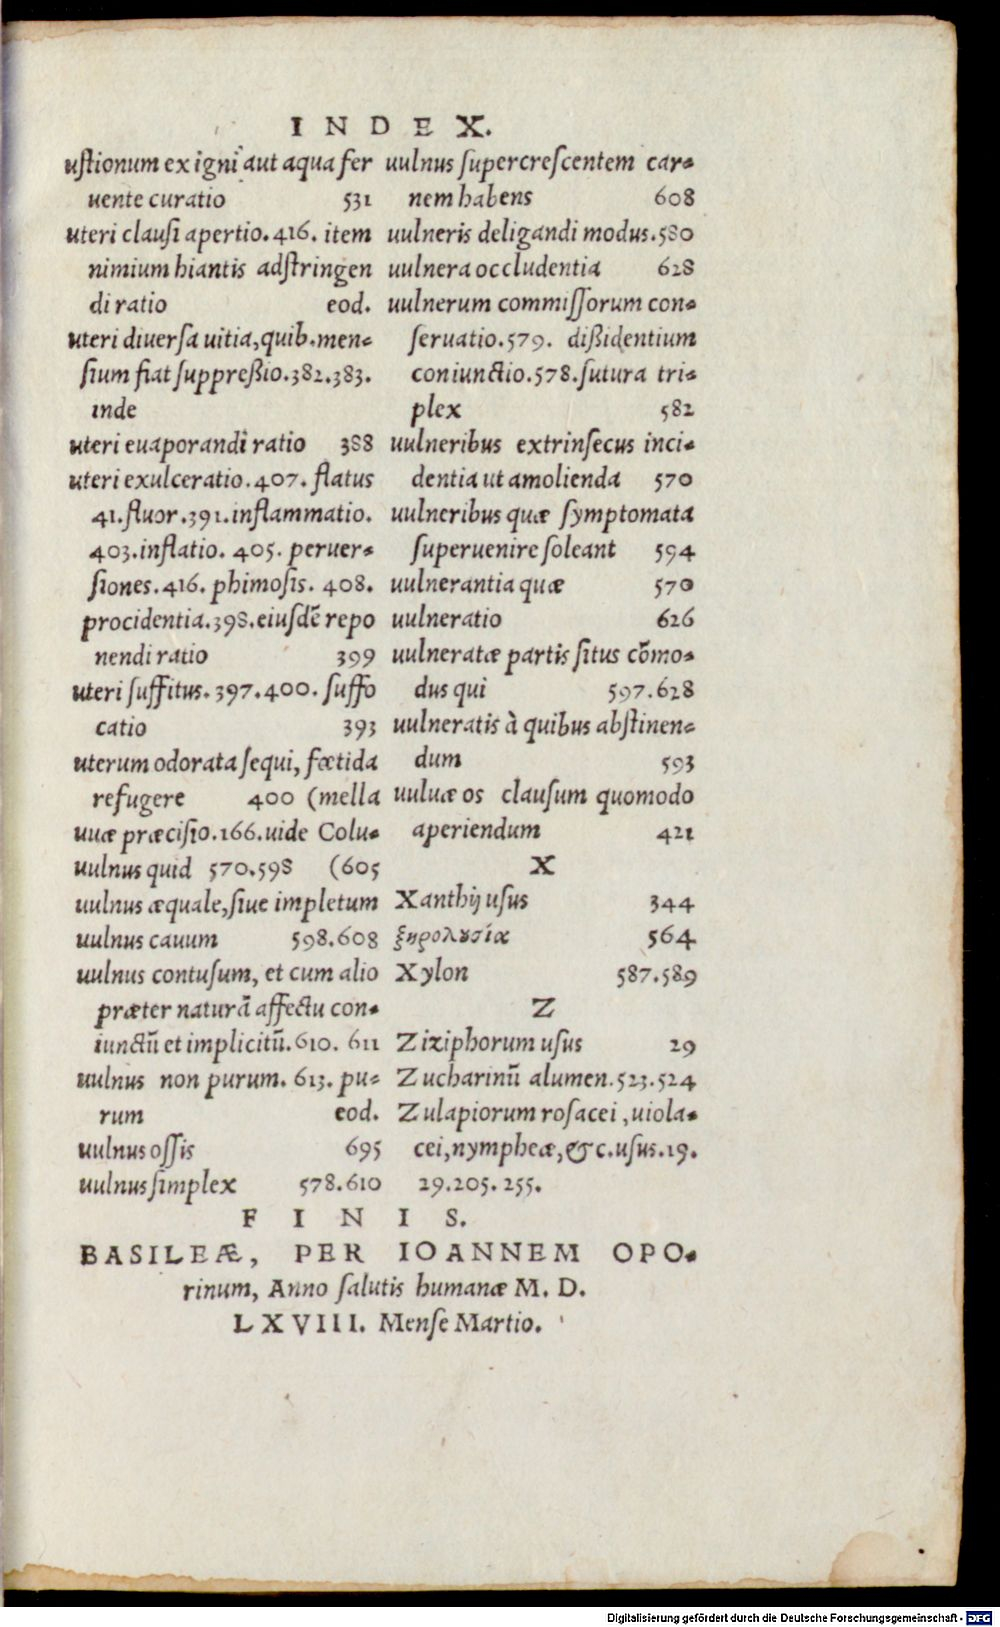 INDEX.
ustionum ex igni aut aqua fer
uente curatio 531
uteri clausi apertio. 416. item
nimium hiantis adstringen
di ratio eod.
uteri diuersa uitia, quib. men-
sium fiat suppreßio. 382. 383.
inde
uteri euaporandi ratio 388
uteri exulceratio. 407. flatus
41. fluor. 391. inflammatio.
403. inflatio. 405. peruer-
siones. 416. phimosis. 408.
procidentia. 398. eiusdē repo
nendi ratio 399
uteri suffitus. 397. 400. suffo
catio 393
uterum odorata sequi, fœtida
refugere 400 (mella
uuæ præcisio. 166. uide Colu-
uulnus quid 570. 598 (605
uulnus æquale, siue impletum
uulnus cauum 598. 608
uulnus contusum, et cum alio
præter naturā affectu con-
iunctū et implicitū. 610. 611
uulnus non purum. 613. pu-
rum eod.
uulnus ossis 695
uulnus simplex 578. 610
uulnus supercrescentem car-
nem habens 608
uulneris deligandi modus. 580
uulnera occludentia 628
uulnerum commissorum con-
seruatio. 579. dißidentium
coniunctio. 578. sutura tri-
plex 582
uulneribus extrinsecus inci-
dentia ut amolienda 570
uulneribus quæ symptomata
superuenire soleant 594
uulnerantia quæ 570
uulneratio 626
uulneratæ partis situs cōmo-
dus qui 597. 628
uulneratis à quibus abstinen-
dum 593
uuluæ os clausum quomodo
aperiendum 421
X
Xanthij usus 344
ξηρολυσία 564
Xylon 587. 589
Z
Zixiphorum usus 29
Zucharinū alumen. 523. 524
Zulapiorum rosacei, uiola-
cei, nympheæ, &c. usus. 19.
29. 205. 255.
FINIS.
BASILEÆ, PER IOANNEM OPO-
rinum, Anno salutis humanæ M. D.
LXVIII. Mense Martio.
Digitalisierung gefördert durch die Deutsche Forschungsgemeinschaft - DFG